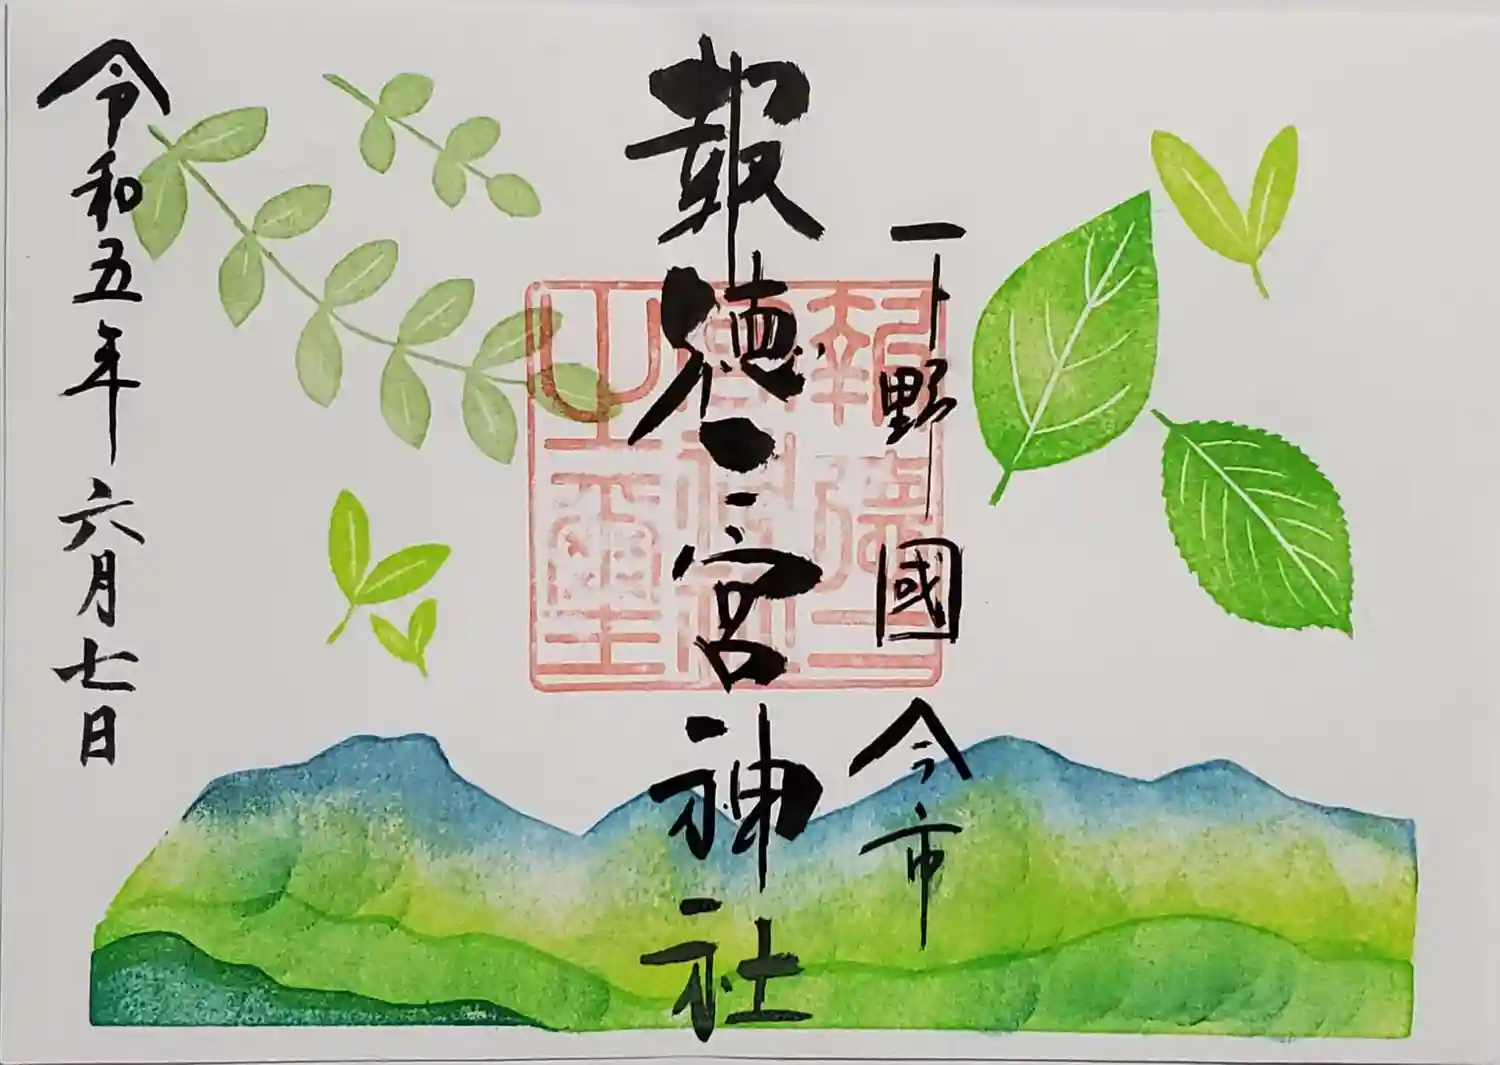 下野國 今市
報徳二宮神社
令和五年六月七日
報徳二
宮神社
之璽